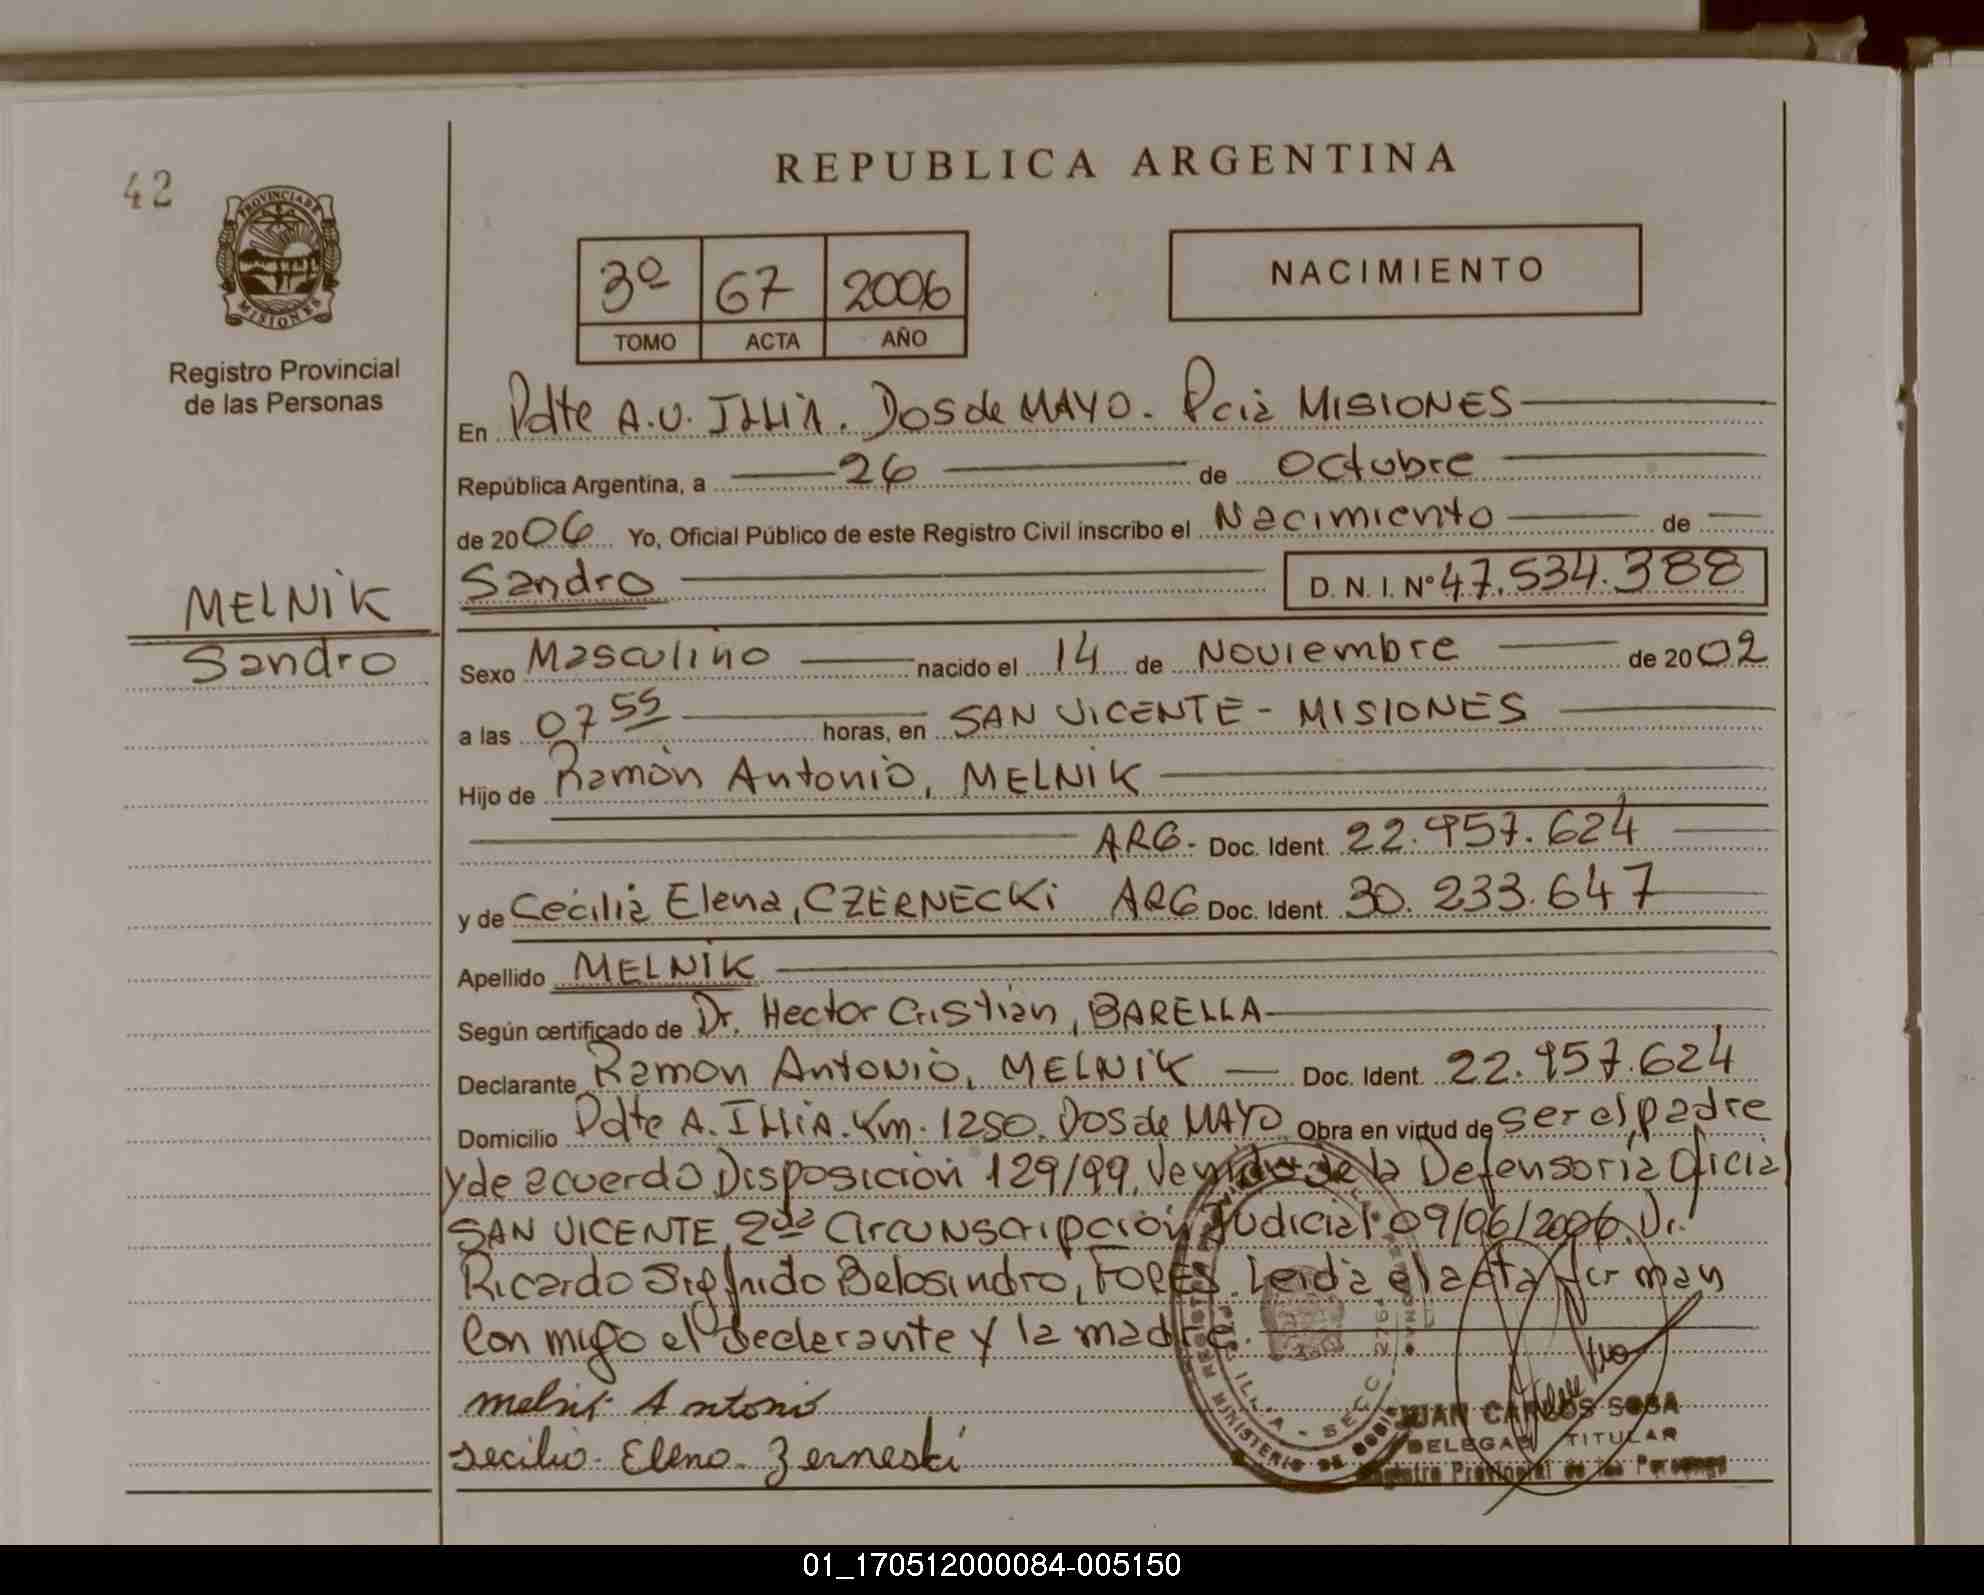 42
REPUBLICA ARGENTINA
PROVINCIA DE
MISIONES
3º 67 2006
TOMO ACTA AÑO
NACIMIENTO
Registro Provincial
de las Personas
En Pdte A.U. Illia. Dos de MAYO. Pcia MISIONES
República Argentina, a 26 de Octubre
de 2006 Yo, Oficial Público de este Registro Civil inscribo el Nacimiento de
Sandro D. N. I. Nº 47.534.388
MELNIK
Sandro
Sexo Masculino nacido el 14 de Noviembre de 2002
a las 07 55 horas, en SAN VICENTE - MISIONES
Hijo de Ramón Antonio, MELNIK
ARG. Doc. Ident. 22.957.624
y de Cecilia Elena, CZERNECKi ARG Doc. Ident. 30.233.647
Apellido MELNIK
Según certificado de Dr. Hector Cristian, BARELLA
Declarante Ramon Antonio, MELNIK Doc. Ident. 22.957.624
Domicilio Pdte A. Illia. Km. 1250. Dos de MAYO Obra en virtud de ser el padre
y de acuerdo Disposición 129/99, Venida de la Defensoria Oficial
SAN VICENTE 2da Circunscripción Judicial 09/06/2006. Dr.
Ricardo Sigfrido Belosindro, FORES. Leida el acta firman
Con migo el declerante y la madre.
melnik Antonio
secilio Eleno Zerneski
JUAN CARLOS SOSA
DELEGADO TITULAR
Registro Provincial de las Personas
01_170512000084-005150